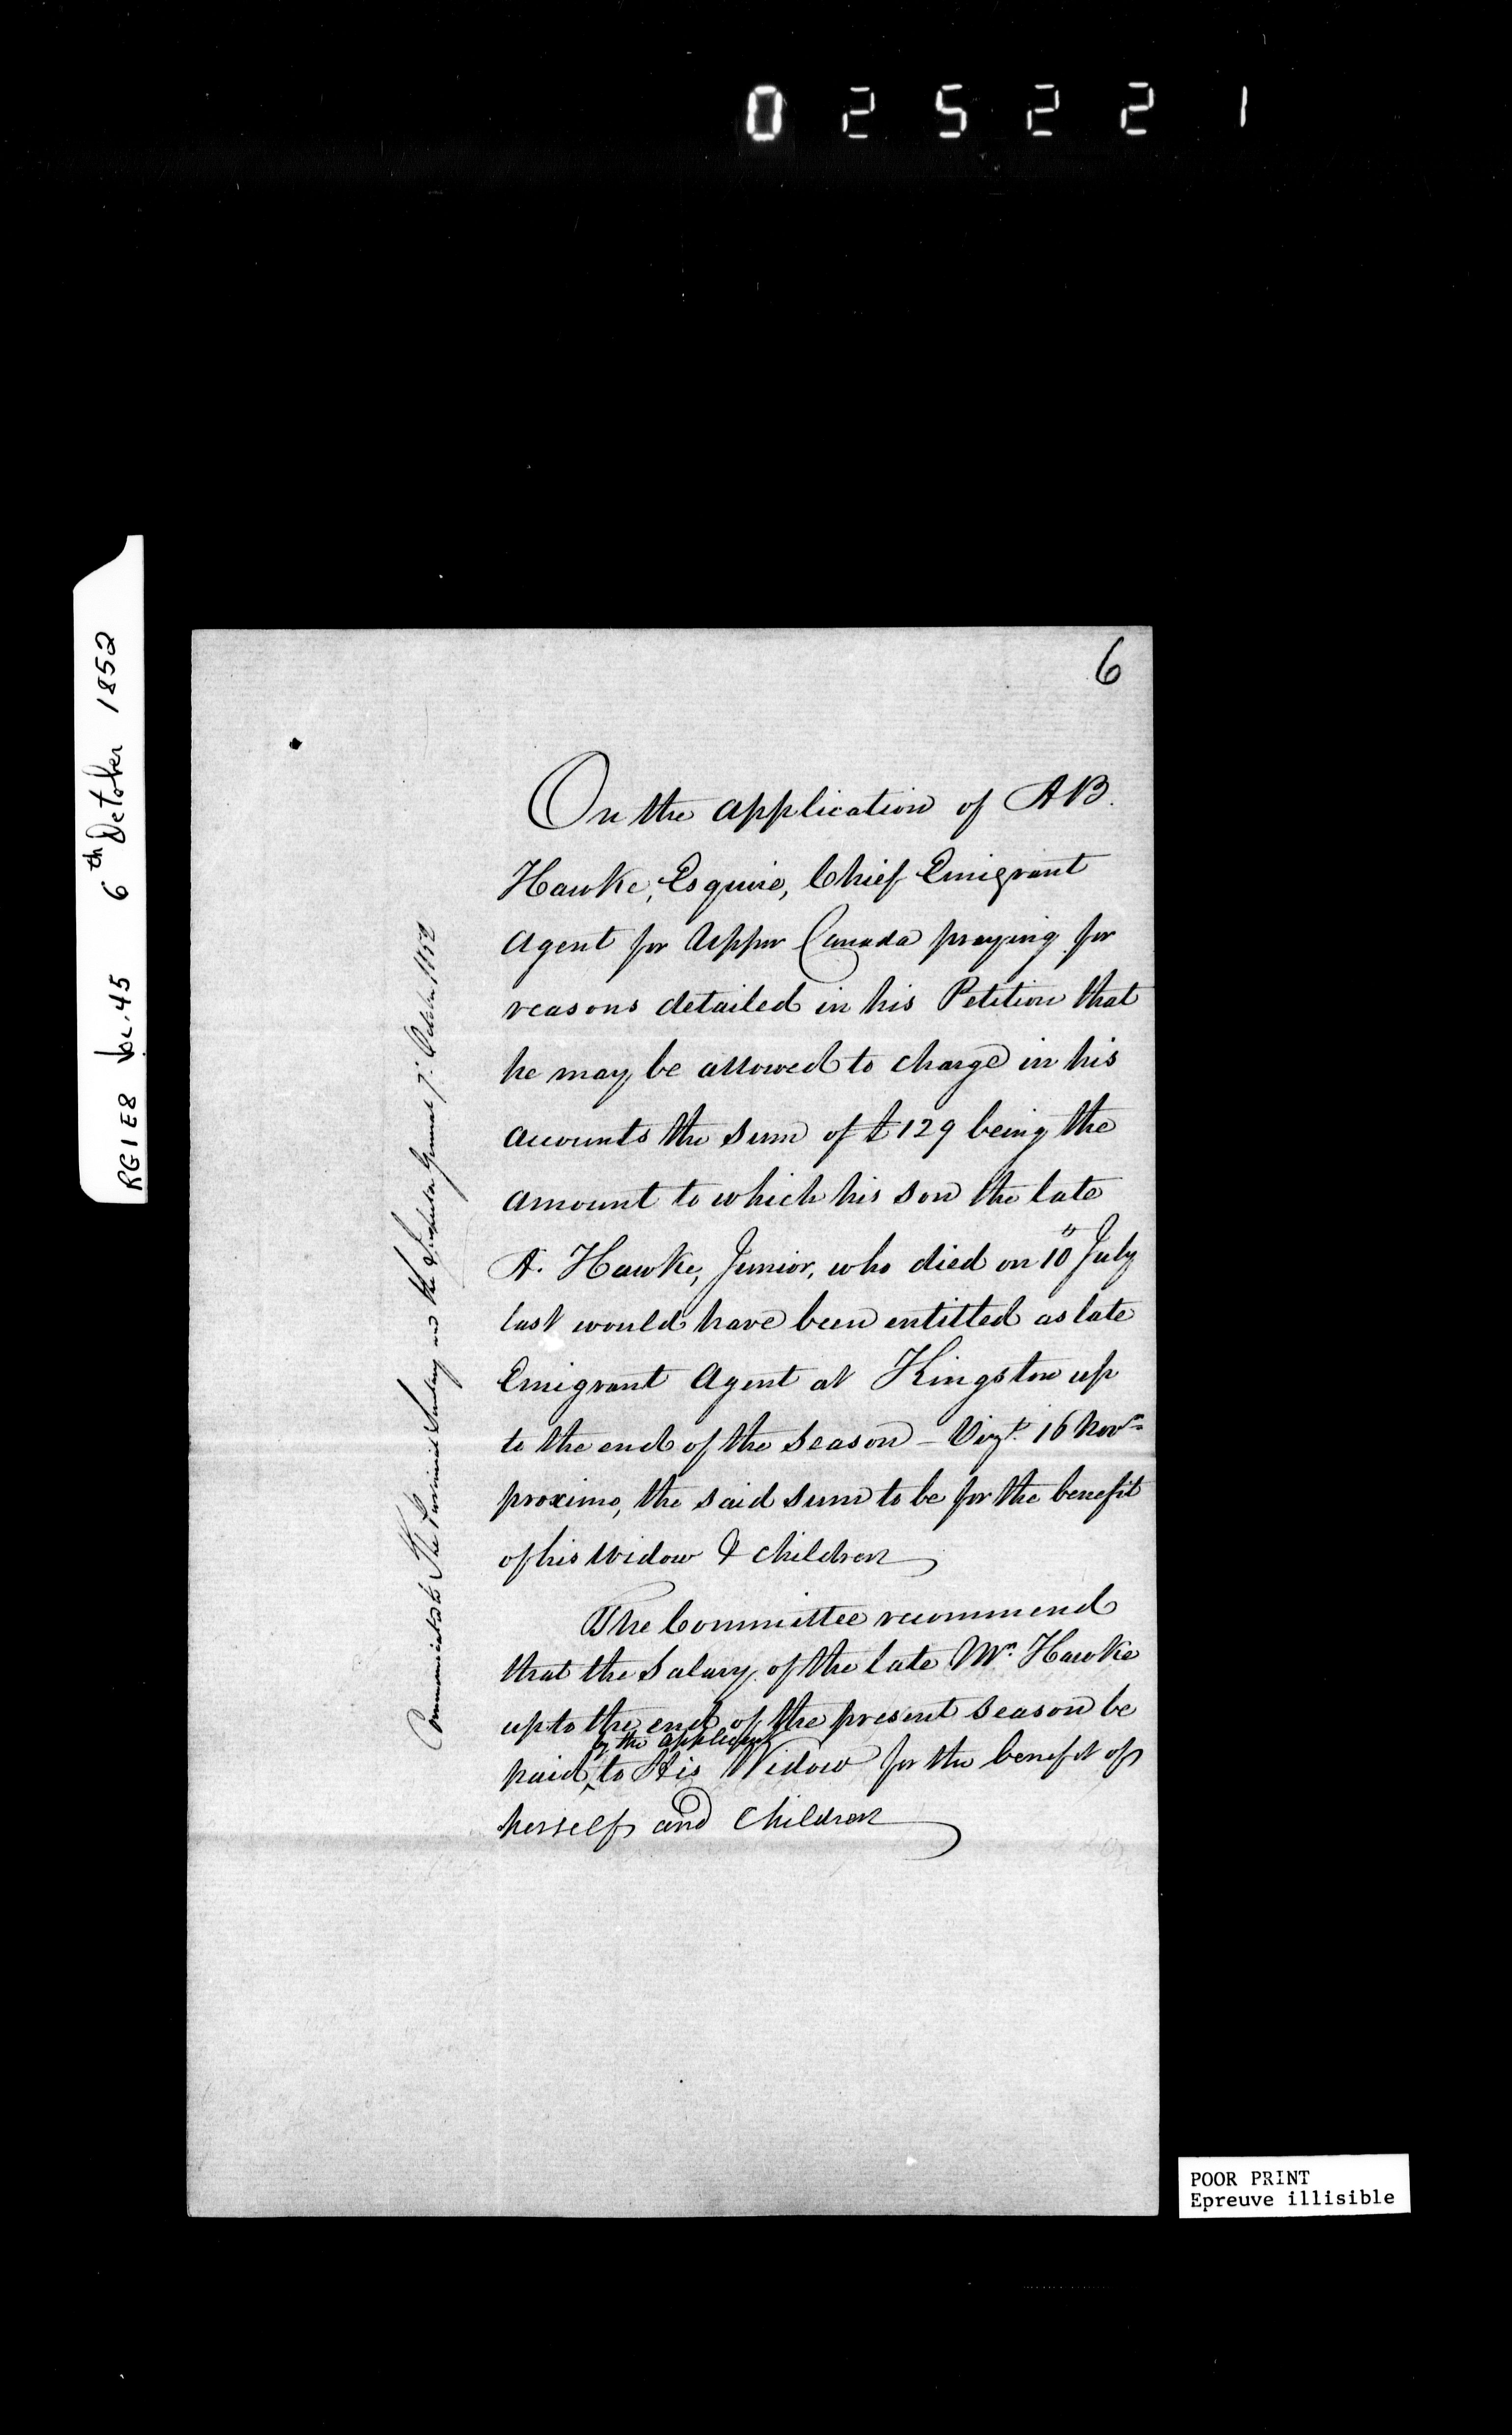 025221
RG1E8 Vol. 45 6th October 1852
6
On the application of A B.
Hawke, Esquire, Chief Emigrant
Agent for Upper Canada praying for
reasons detailed in his Petition that
he may be allowed to charge in his
accounts the sum of £129 being the
amount to which his son the late
A. Hawke, Junior, who died on 10th July
last would have been entitled as late
Emigrant Agent at Kingston up
to the end of the season – Vizt. 16 Novr
proximo, the said sum to be for the benefit
of his widow & children
The Committee recommend
that the Salary of the late Mr. Hawke
up to the end of the present season be
by the applicant
paid ^ to His Widow for the benefit of
herself and Children
Communicated to The Provincial Secretary and the Inspector General 7. October 1852
POOR PRINT
Epreuve illisible